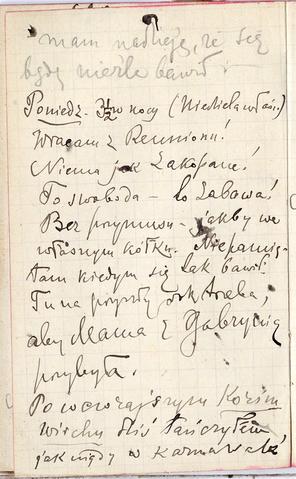 mam nadzieję, że się
będę nieźle bawił
Poniedz. 3½ w nocy (Niedziela właśc.)
Wracam z Reunionu!
Niema jak Zakopane!
To swoboda – to zabawa!
Bez przymusu – jakby we
własnym kółku. Niepamię-
tam kiedym się tak bawił.
Tu na przyszły rok trzeba,
aby Mama z Gabrynią
przybyła.
Po wczorajszym Kozim
wirchu dziś tańczyłem
jak nigdy w karnawale